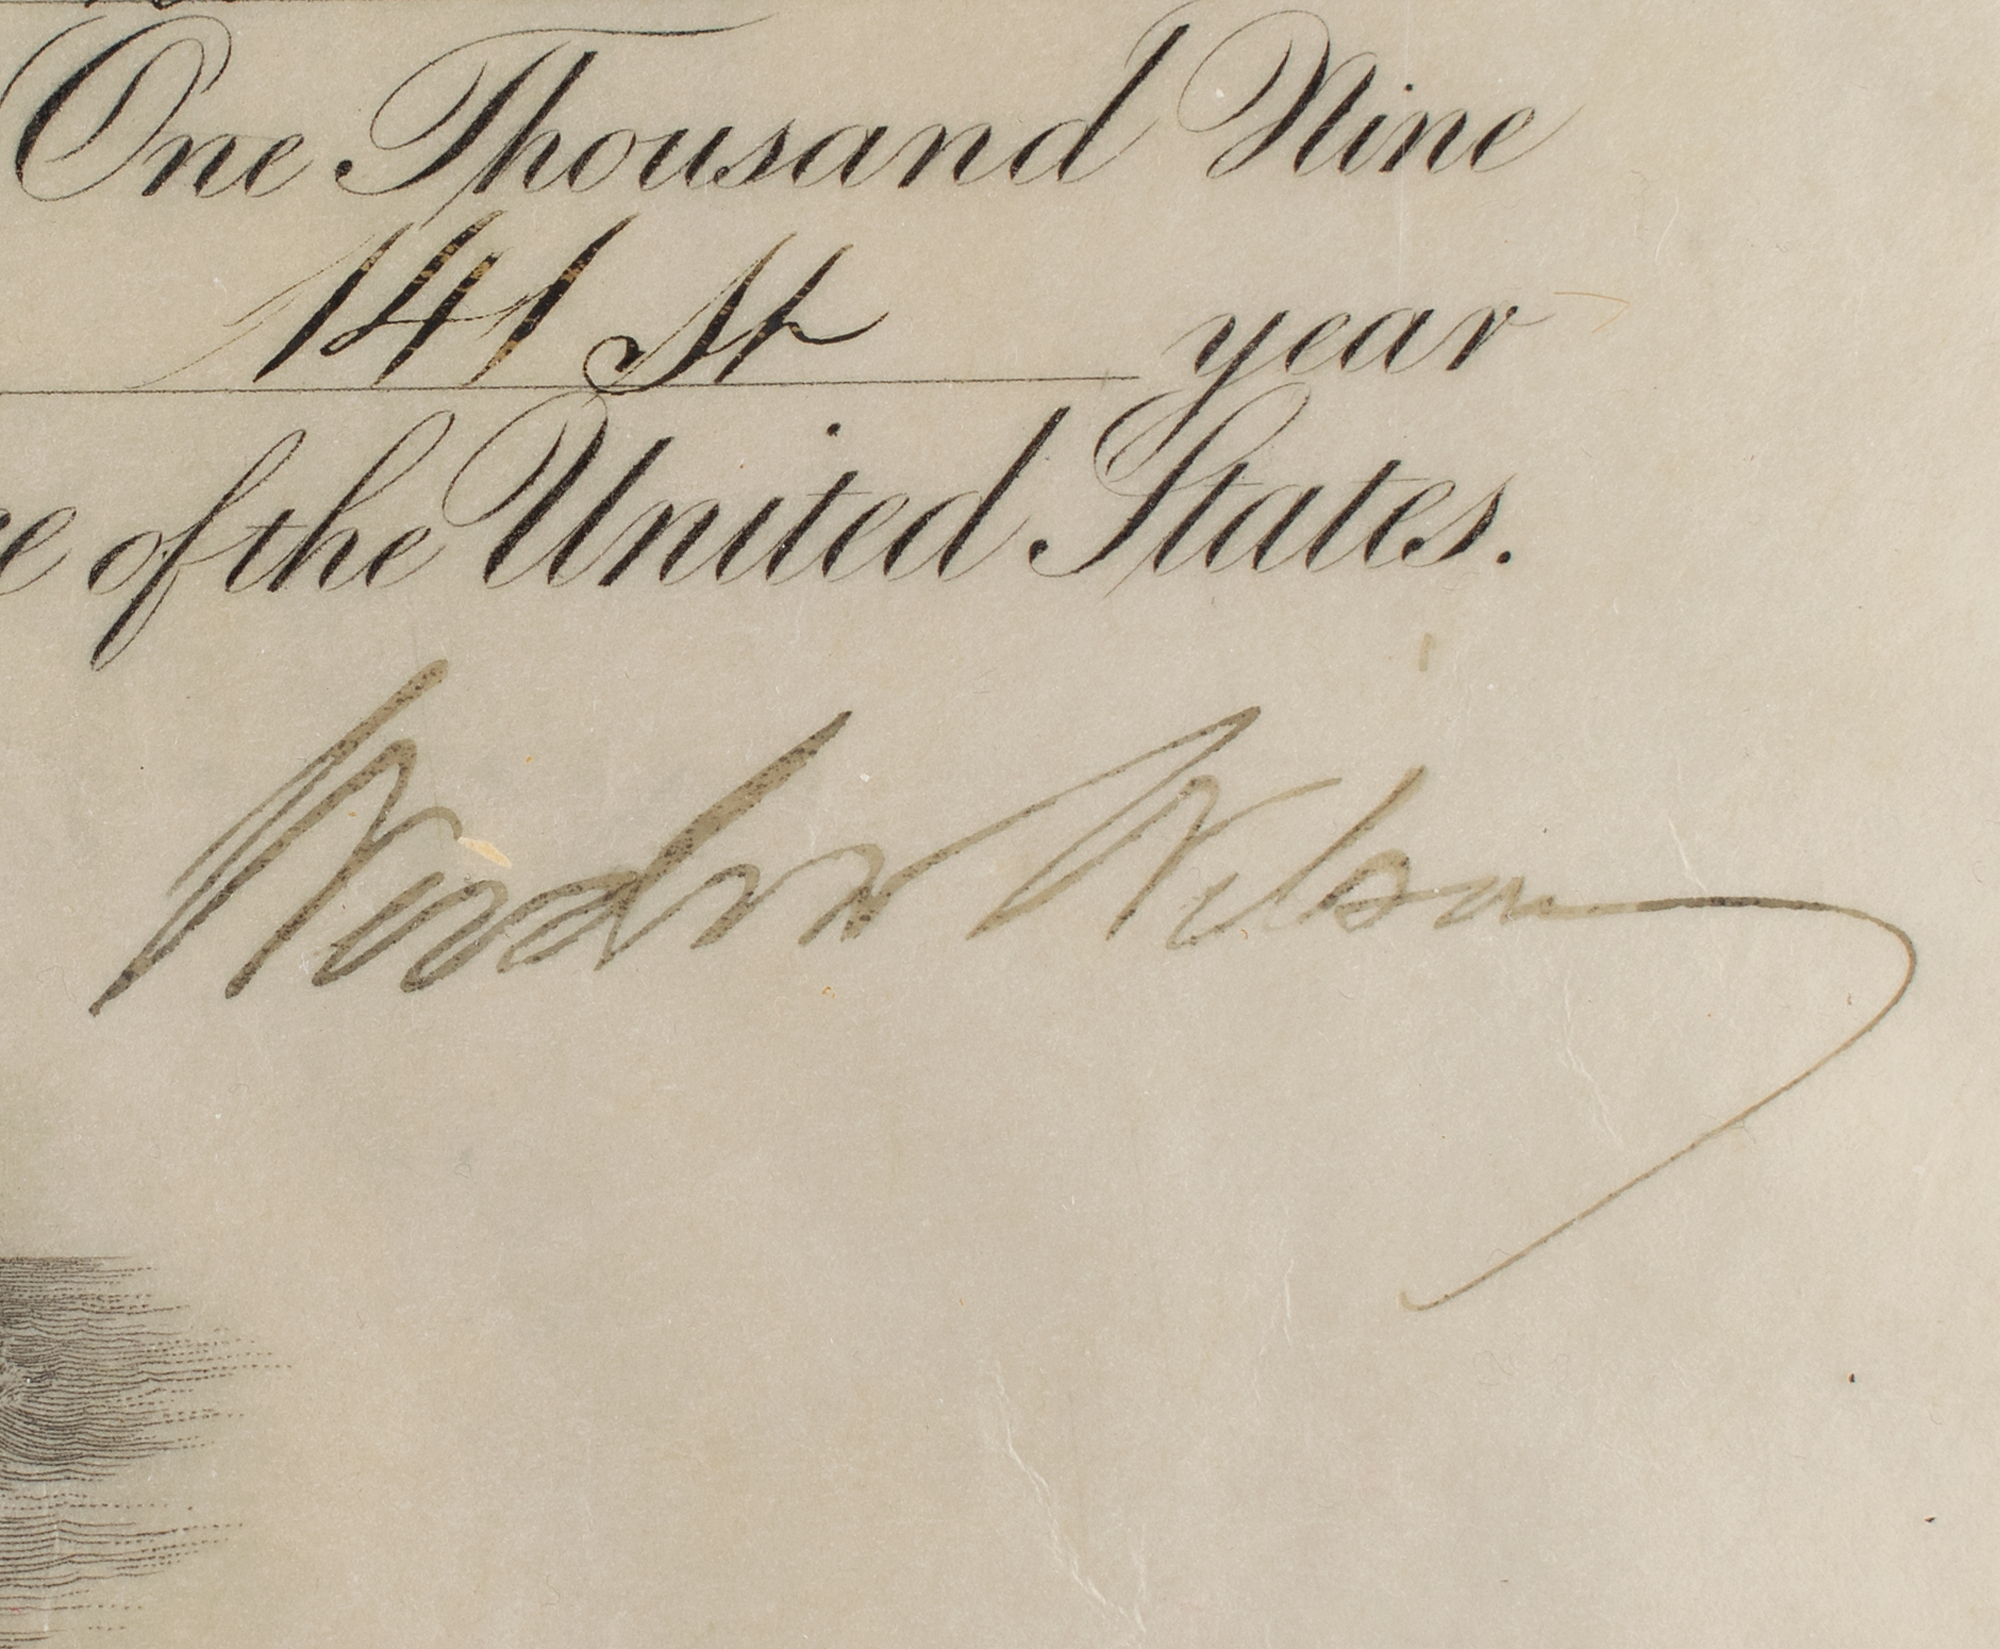 One Thousand Nine
141st year
of the United States.
Woodrow Wilson